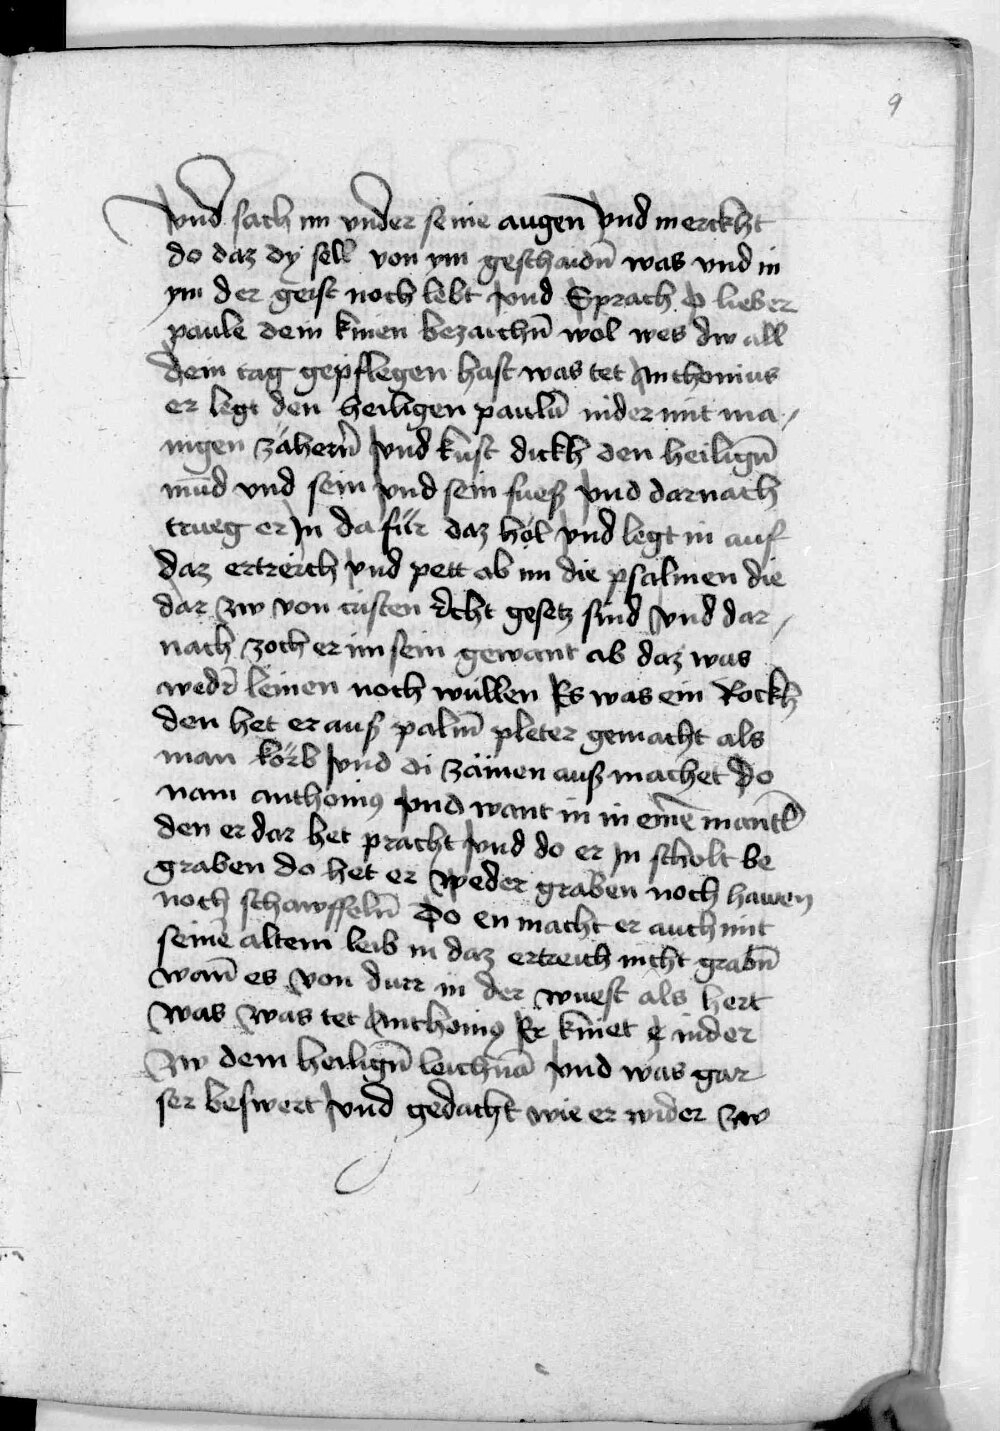 9
Vnd sach im vnder seine augen vnd merckht
do daz dy sell von ym geschaidn̄ was vnd in
ym der geist noch lebt vnd Sprach O lieber
paule dein knien bezaichn̄ wol wes dw all
dein tag gepflegen hast was tet Anthonius
er legt den heiligen paulū nider mit ma-
nigen zähern̄ vnd kust dickh den heilign̄
mūd vnd sein vnd sein fueß vnd darnach
trueg er In da für daz höl vnd legt in auf
daz ertreich vnd pett ob im die psalmen die
dar zw von cristen echt gesetz sind vnd dar-
nach zoch er im sein gewant ab daz was
wedr̄ leinen noch wullen Es was ein Rockh
den het er auß palm̄ pleter gemacht als
man körb vnd di zainen auß machet Do
nam anthoniꝰ vnd want in in einē mantl̄
den er dar het pracht vnd do er In scholt be
graben do het er weder graben noch hawen
noch schawffeln̄ Do en macht er auch mit
seinē altem leib in daz ertreich nicht grabn̄
wan̄ es von durr in der wuest als hert
was was tet Anthoniꝰ Er kniet e nider
Zw dem heilign̄ leichnā vnd was gar
ser beswert vnd gedacht wie er wider zw